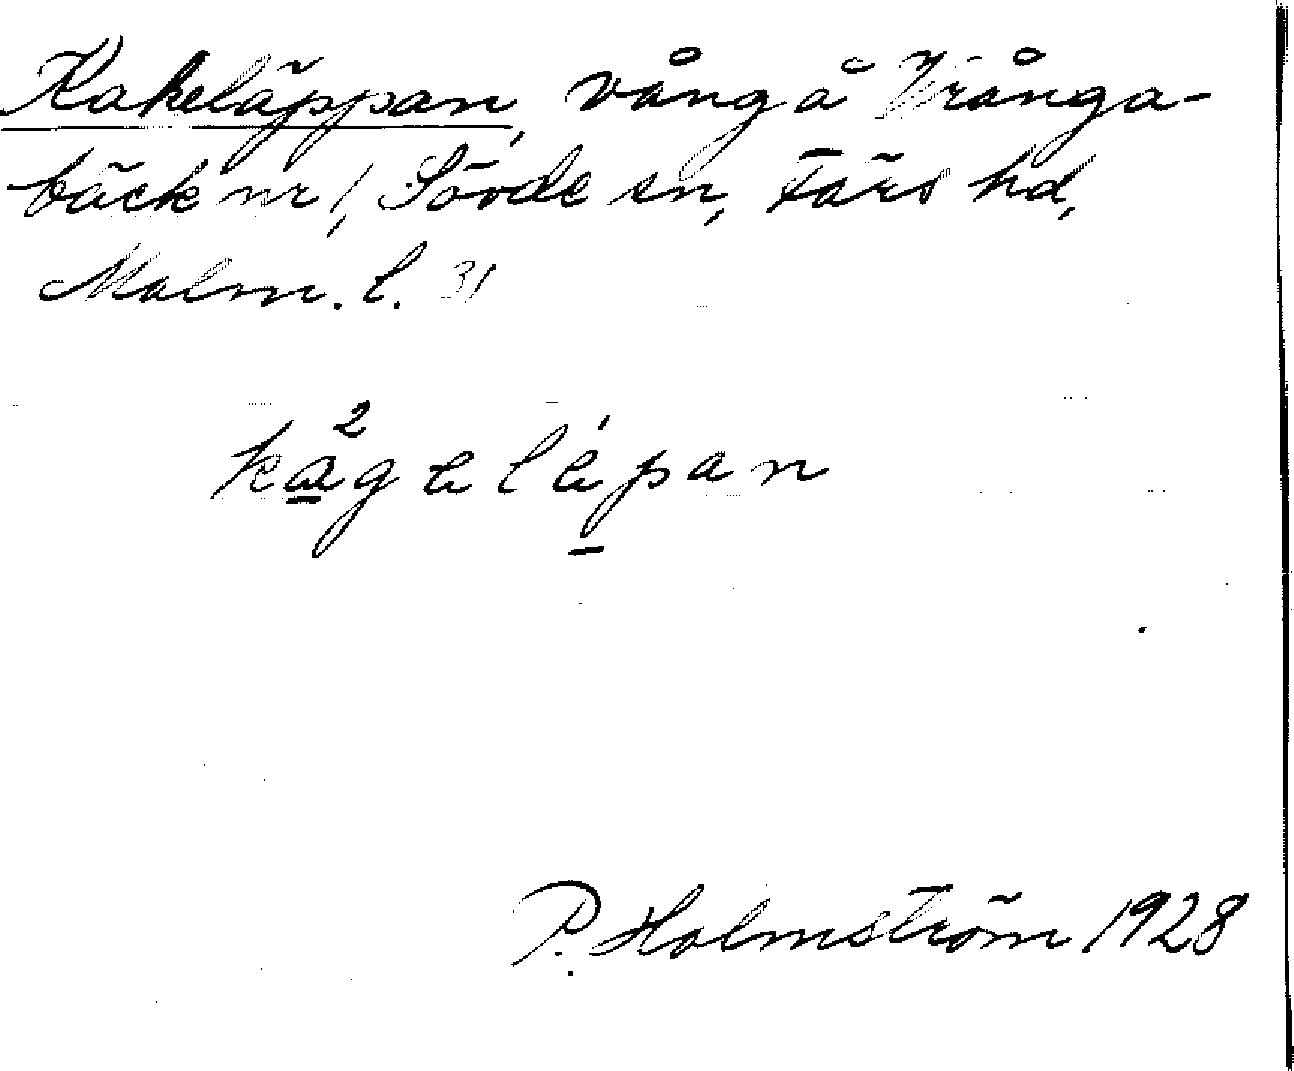 Kakeläppan, vång å Vrånga-
bäck nr 1, Sövde sn, Färs hd,
Malm. l. 31
kågelépan
P. Holmström 1928